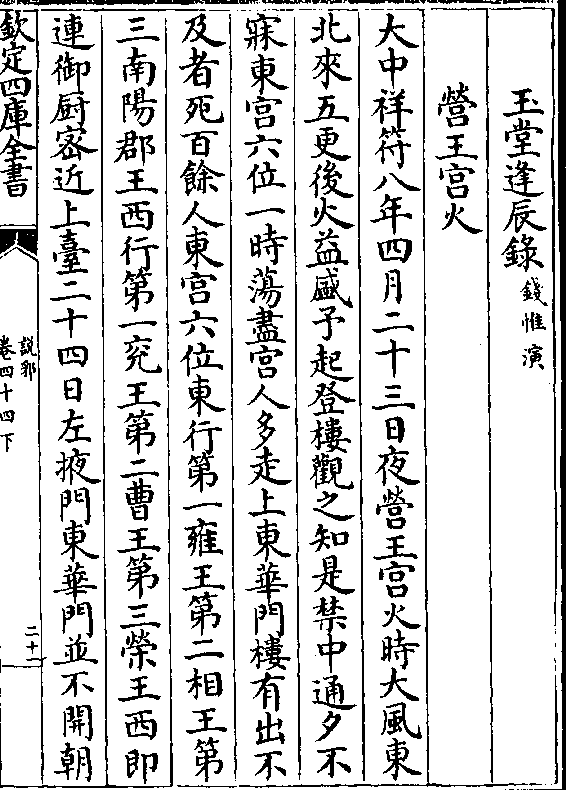 玉堂逢辰錄錢惟演
營王宮火
大中祥符八年四月二十三日夜營王宮火時大風東
北來五更後火益盛予起登樓觀之知是禁中通夕不
寐東宮六位一時蕩盡宮人多走上東華門樓有出不
及者死百餘人東宮六位東行第一雍王第二相王第
三南陽郡王西行第一兖王第二曹王第三榮王西即
連御厨密近上臺二十四日左掖門東華門並不開朝
欽定四庫全書
說郛
卷四十四下
二十一